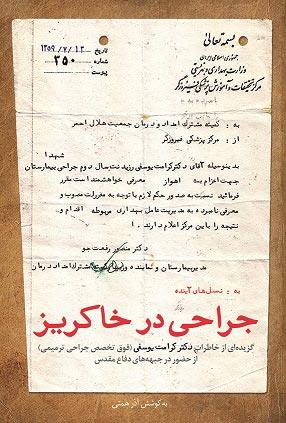 بسمه تعالی
جمهوری اسلامی ایران
وزارت بهداری و بهزیستی
مرکز تحقیقات و آموزش پزشکی فیروزگر
تاریخ ۱۳۵۹/۷/۱۲
شماره ۳۵۰
پیوست
به : کمیته مشترک امداد و درمان جمعیت هلال احمر
از : مرکز پزشکی فیروزگر
شهدا
بدینوسیله آقای دکتر کرامت یوسفی رزیدنت سال دوم جراحی بیمارستان
جهت اعزام به اهواز معرفی خواهشمند است مقرر
فرمائید نسبت به صدور حکم لازم با توجه به مقررات مصوب و
معرفی نامبرده به مدیریت عامل بهداری مربوطه اقدام و
نتیجه را باین مرکز اعلام دارند .
دکتر منصور رفعت جو
مدیر بیمارستان و نماینده مشترک امداد و درمان
به : نسل‌های آینده
جراحی در خاکریز
گزیده‌ای از خاطرات دکتر کرامت یوسفی (فوق تخصص جراحی ترمیمی)
از حضور در جبهه‌های دفاع مقدس
به کوشش آذر همتی